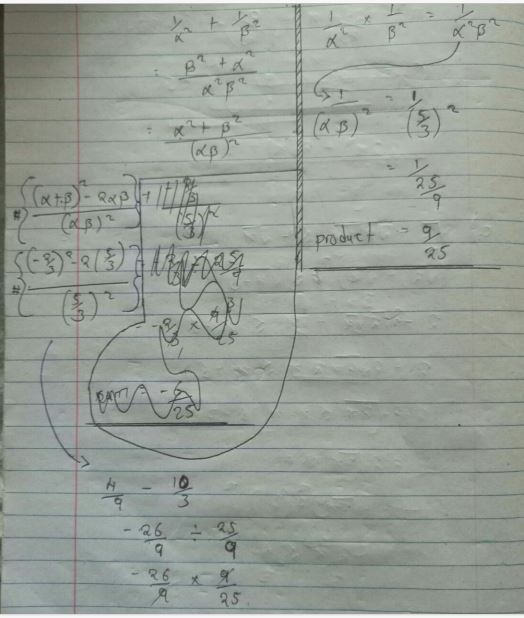 1/α² + 1/β²
= β² + α² / α²β²
= α² + β² / (αβ)²
# { (α+β)² - 2αβ / (αβ)² }
# { (-2/3)² - 2(5/3) / (5/3)² }
-2/3 × 9/25
- 6/25
4/9 - 10/3
-26/9 ÷ 25/9
-26/9 × 9/25
1/α² × 1/β² = 1/α²β²
1/(αβ)² = 1/(5/3)²
= 1/25/9
product = 9/25